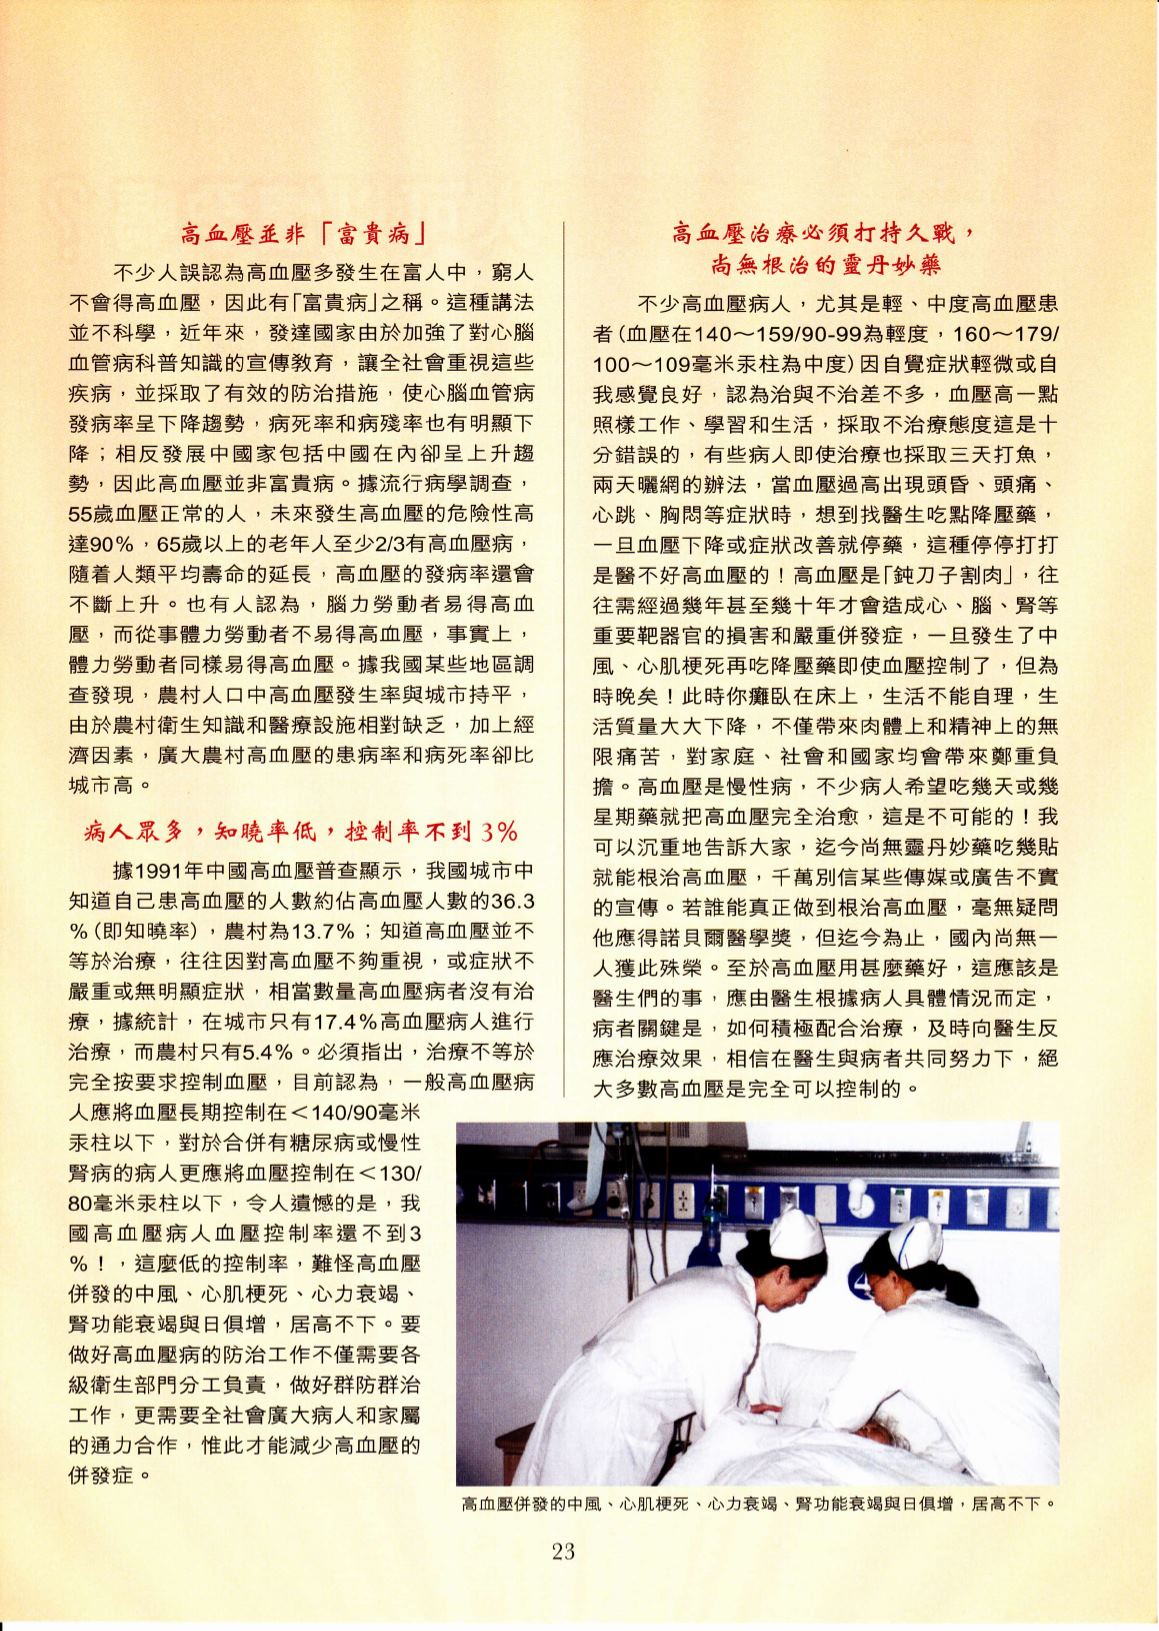 高血壓並非「富貴病」
不少人誤認為高血壓多發生在富人中，窮人
不會得高血壓，因此有「富貴病」之稱。這種講法
並不科學，近年來，發達國家由於加強了對心腦
血管病科普知識的宣傳教育，讓全社會重視這些
疾病，並採取了有效的防治措施，使心腦血管病
發病率呈下降趨勢，病死率和病殘率也有明顯下
降；相反發展中國家包括中國在內卻呈上升趨
勢，因此高血壓並非富貴病。據流行病學調查，
55歲血壓正常的人，未來發生高血壓的危險性高
達90%，65歲以上的老年人至少2/3有高血壓病，
隨着人類平均壽命的延長，高血壓的發病率還會
不斷上升。也有人認為，腦力勞動者易得高血
壓，而從事體力勞動者不易得高血壓，事實上，
體力勞動者同樣易得高血壓。據我國某些地區調
查發現，農村人口中高血壓發生率與城市持平，
由於農村衛生知識和醫療設施相對缺乏，加上經
濟因素，廣大農村高血壓的患病率和病死率卻比
城市高。
病人眾多，知曉率低，控制率不到3%
據1991年中國高血壓普查顯示，我國城市中
知道自己患高血壓的人數約佔高血壓人數的36.3
%（即知曉率），農村為13.7%；知道高血壓並不
等於治療，往往因對高血壓不夠重視，或症狀不
嚴重或無明顯症狀，相當數量高血壓病者沒有治
療，據統計，在城市只有17.4%高血壓病人進行
治療，而農村只有5.4%。必須指出，治療不等於
完全按要求控制血壓，目前認為，一般高血壓病
人應將血壓長期控制在＜140/90毫米
汞柱以下，對於合併有糖尿病或慢性
腎病的病人更應將血壓控制在＜130/
80毫米汞柱以下，令人遺憾的是，我
國高血壓病人血壓控制率還不到3
%！，這麼低的控制率，難怪高血壓
併發的中風、心肌梗死、心力衰竭、
腎功能衰竭與日俱增，居高不下。要
做好高血壓病的防治工作不僅需要各
級衛生部門分工負責，做好群防群治
工作，更需要全社會廣大病人和家屬
的通力合作，惟此才能減少高血壓的
併發症。
高血壓治療必須打持久戰，
尚無根治的靈丹妙藥
不少高血壓病人，尤其是輕、中度高血壓患
者（血壓在140～159/90-99為輕度，160～179/
100～109毫米汞柱為中度）因自覺症狀輕微或自
我感覺良好，認為治與不治差不多，血壓高一點
照樣工作、學習和生活，採取不治療態度這是十
分錯誤的，有些病人即使治療也採取三天打魚，
兩天曬網的辦法，當血壓過高出現頭昏、頭痛、
心跳、胸悶等症狀時，想到找醫生吃點降壓藥，
一旦血壓下降或症狀改善就停藥，這種停停打打
是醫不好高血壓的！高血壓是「鈍刀子割肉」，往
往需經過幾年甚至幾十年才會造成心、腦、腎等
重要靶器官的損害和嚴重併發症，一旦發生了中
風、心肌梗死再吃降壓藥即使血壓控制了，但為
時晚矣！此時你癱臥在床上，生活不能自理，生
活質量大大下降，不僅帶來肉體上和精神上的無
限痛苦，對家庭、社會和國家均會帶來鄭重負
擔。高血壓是慢性病，不少病人希望吃幾天或幾
星期藥就把高血壓完全治愈，這是不可能的！我
可以沉重地告訴大家，迄今尚無靈丹妙藥吃幾貼
就能根治高血壓，千萬別信某些傳媒或廣告不實
的宣傳。若誰能真正做到根治高血壓，毫無疑問
他應得諾貝爾醫學獎，但迄今為止，國內尚無一
人獲此殊榮。至於高血壓用甚麼藥好，這應該是
醫生們的事，應由醫生根據病人具體情況而定，
病者關鍵是，如何積極配合治療，及時向醫生反
應治療效果，相信在醫生與病者共同努力下，絕
大多數高血壓是完全可以控制的。
高血壓併發的中風、心肌梗死、心力衰竭、腎功能衰竭與日俱增，居高不下。
23